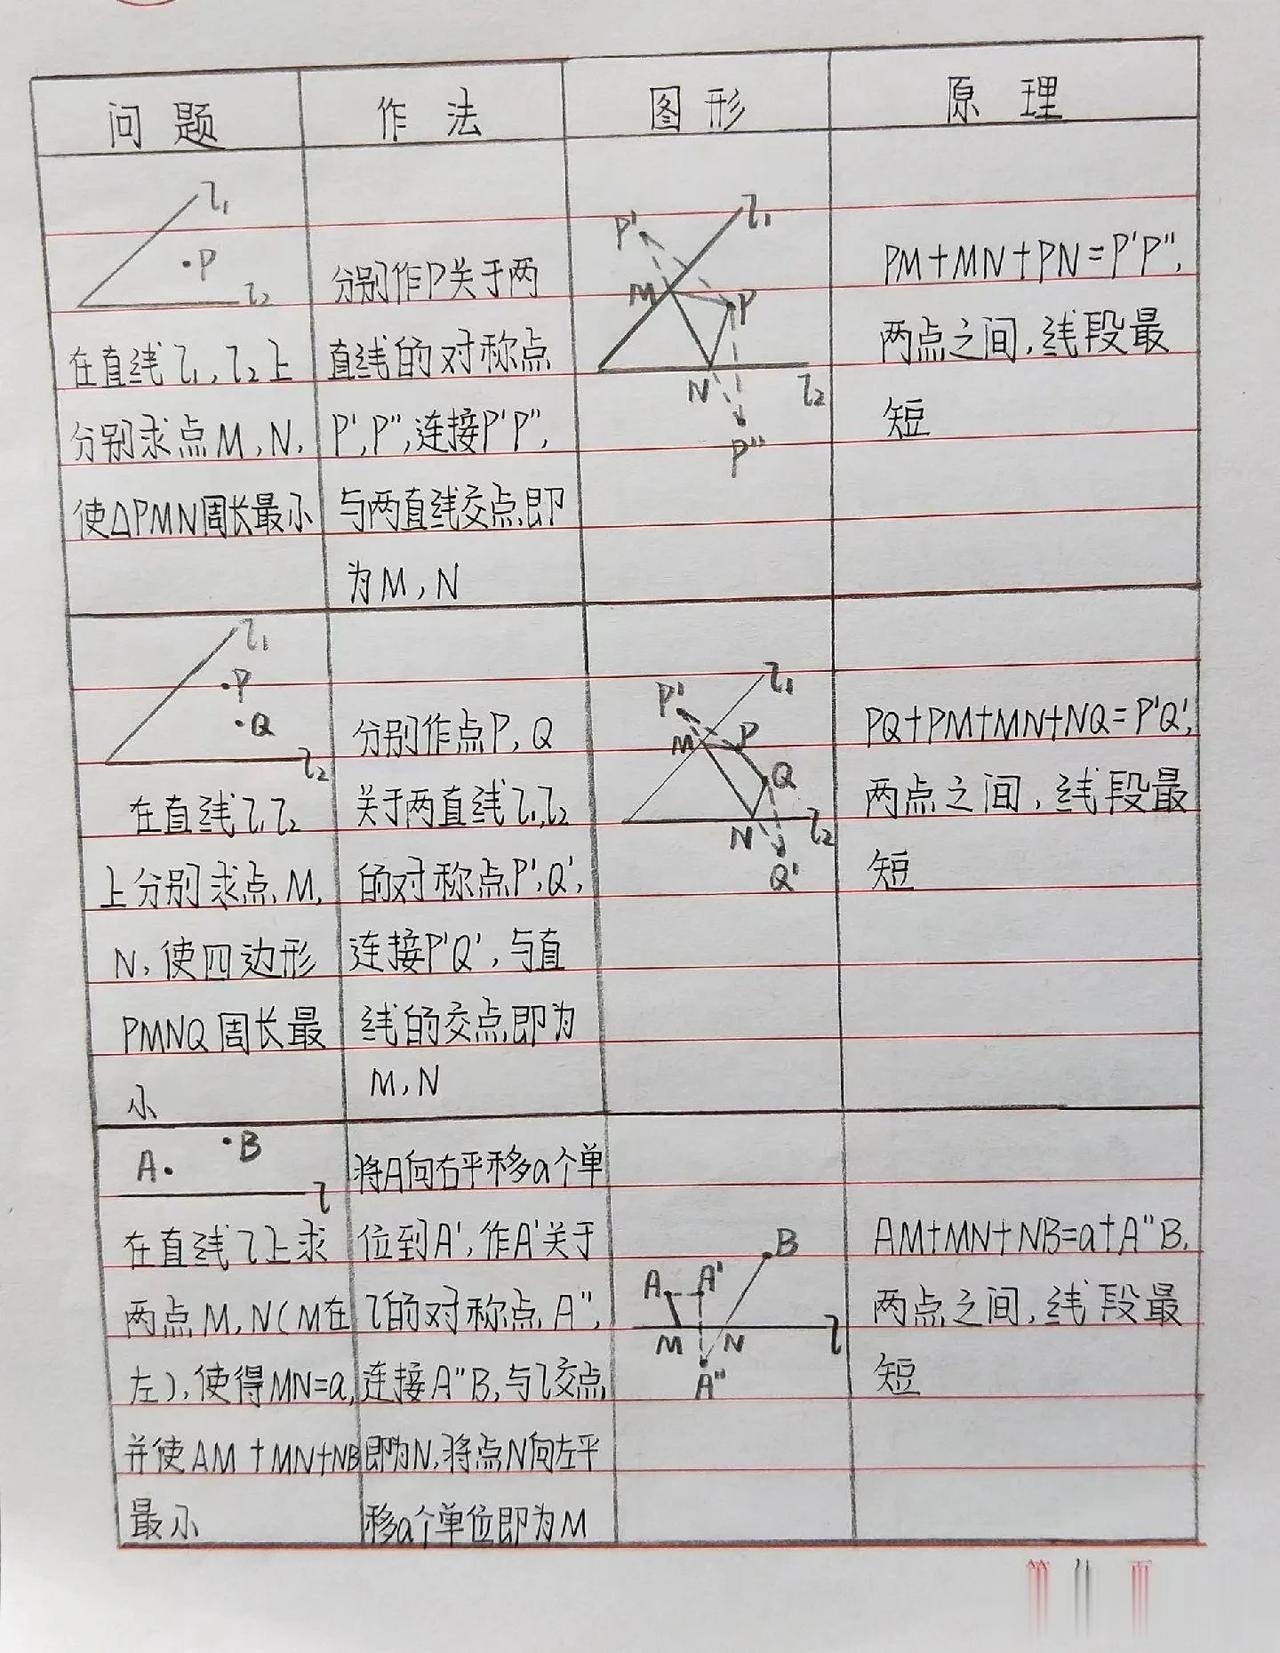 问题
作法
图形
原理
l₁
·P
l₂
在直线l₁,l₂上
分别求点M,N,
使△PMN周长最小
分别作P关于两
直线的对称点
P',P",连接P'P",
与两直线交点即
为M,N
P'
l₁
M
P
N
l₂
P"
PM+MN+PN=P'P",
两点之间,线段最
短
l₁
·P
·Q
l₂
在直线l₁l₂
上分别求点M,
N,使四边形
PMNQ周长最
小
分别作点P,Q
关于两直线l₁,l₂
的对称点P',Q',
连接P'Q',与直
线的交点即为
M,N
P'
l₁
M
P
Q
N
l₂
Q'
PQ+PM+MN+NQ=P'Q',
两点之间,线段最
短
A·
·B
l
在直线l上求
两点M,N(M在
左),使得MN=a,
并使AM+MN+NB
最小
将A向右平移a个单
位到A',作A'关于
l的对称点A",
连接A"B,与l交点
即为N,将点N向左平
移a个单位即为M
B
A
A'
M
N
l
A"
AM+MN+NB=a+A"B,
两点之间,线段最
短
第
页